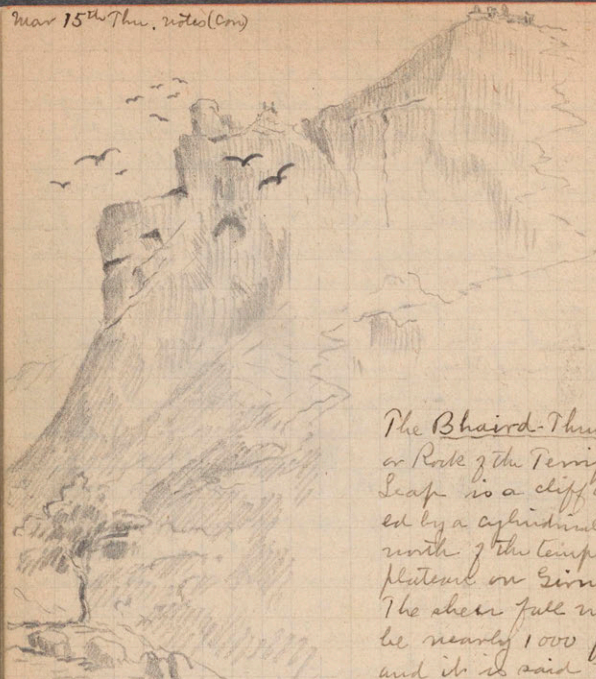 Mar 15th Thu. notes (Con)
The Bhaird-Thu
or Rock of the Terri
Leap is a cliff
ed by a cylindrical
north of the temp
plateau on Girn
The sheer fall
be nearly 1000
and it is said